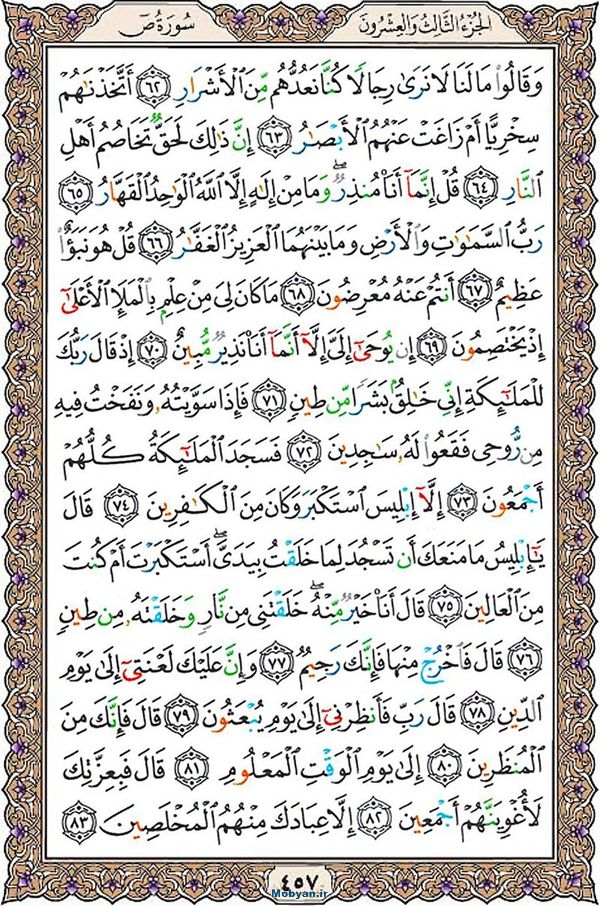 الجُزءُ الثَّالِثُ وَالعِشرُونَ
سُورَةُ صٓ
وَقَالُوا۟ مَا لَنَا لَا نَرَىٰ رِجَالًا كُنَّا نَعُدُّهُم مِّنَ ٱلْأَشْرَارِ ﴿٦٢﴾ أَتَّخَذْنَٰهُمْ
سِخْرِيًّا أَمْ زَاغَتْ عَنْهُمُ ٱلْأَبْصَٰرُ ﴿٦٣﴾ إِنَّ ذَٰلِكَ لَحَقٌّ تَخَاصُمُ أَهْلِ
ٱلنَّارِ ﴿٦٤﴾ قُلْ إِنَّمَآ أَنَا۠ مُنذِرٌ ۖ وَمَا مِنْ إِلَٰهٍ إِلَّا ٱللَّهُ ٱلْوَٰحِدُ ٱلْقَهَّارُ ﴿٦٥﴾
رَبُّ ٱلسَّمَٰوَٰتِ وَٱلْأَرْضِ وَمَا بَيْنَهُمَا ٱلْعَزِيزُ ٱلْغَفَّٰرُ ﴿٦٦﴾ قُلْ هُوَ نَبَؤٌا۟
عَظِيمٌ ﴿٦٧﴾ أَنتُمْ عَنْهُ مُعْرِضُونَ ﴿٦٨﴾ مَا كَانَ لِىَ مِنْ عِلْمٍۭ بِٱلْمَلَإِ ٱلْأَعْلَىٰٓ
إِذْ يَخْتَصِمُونَ ﴿٦٩﴾ إِن يُوحَىٰٓ إِلَىَّ إِلَّآ أَنَّمَآ أَنَا۠ نَذِيرٌ مُّبِينٌ ﴿٧٠﴾ إِذْ قَالَ رَبُّكَ
لِلْمَلَٰٓئِكَةِ إِنِّى خَٰلِقٌۢ بَشَرًا مِّن طِينٍ ﴿٧١﴾ فَإِذَا سَوَّيْتُهُۥ وَنَفَخْتُ فِيهِ
مِن رُّوحِى فَقَعُوا۟ لَهُۥ سَٰجِدِينَ ﴿٧٢﴾ فَسَجَدَ ٱلْمَلَٰٓئِكَةُ كُلُّهُمْ
أَجْمَعُونَ ﴿٧٣﴾ إِلَّآ إِبْلِيسَ ٱسْتَكْبَرَ وَكَانَ مِنَ ٱلْكَٰفِرِينَ ﴿٧٤﴾ قَالَ
يَٰٓإِبْلِيسُ مَا مَنَعَكَ أَن تَسْجُدَ لِمَا خَلَقْتُ بِيَدَىَّ ۖ أَسْتَكْبَرْتَ أَمْ كُنتَ
مِنَ ٱلْعَالِينَ ﴿٧٥﴾ قَالَ أَنَا۠ خَيْرٌ مِّنْهُ ۖ خَلَقْتَنِى مِن نَّارٍ وَخَلَقْتَهُۥ مِن طِينٍ
﴿٧٦﴾ قَالَ فَٱخْرُجْ مِنْهَا فَإِنَّكَ رَجِيمٌ ﴿٧٧﴾ وَإِنَّ عَلَيْكَ لَعْنَتِىٓ إِلَىٰ يَوْمِ
ٱلدِّينِ ﴿٧٨﴾ قَالَ رَبِّ فَأَنظِرْنِىٓ إِلَىٰ يَوْمِ يُبْعَثُونَ ﴿٧٩﴾ قَالَ فَإِنَّكَ مِنَ
ٱلْمُنظَرِينَ ﴿٨٠﴾ إِلَىٰ يَوْمِ ٱلْوَقْتِ ٱلْمَعْلُومِ ﴿٨١﴾ قَالَ فَبِعِزَّتِكَ
لَأُغْوِيَنَّهُمْ أَجْمَعِينَ ﴿٨٢﴾ إِلَّا عِبَادَكَ مِنْهُمُ ٱلْمُخْلَصِينَ ﴿٨٣﴾
٤٥٧
Mobyan.ir